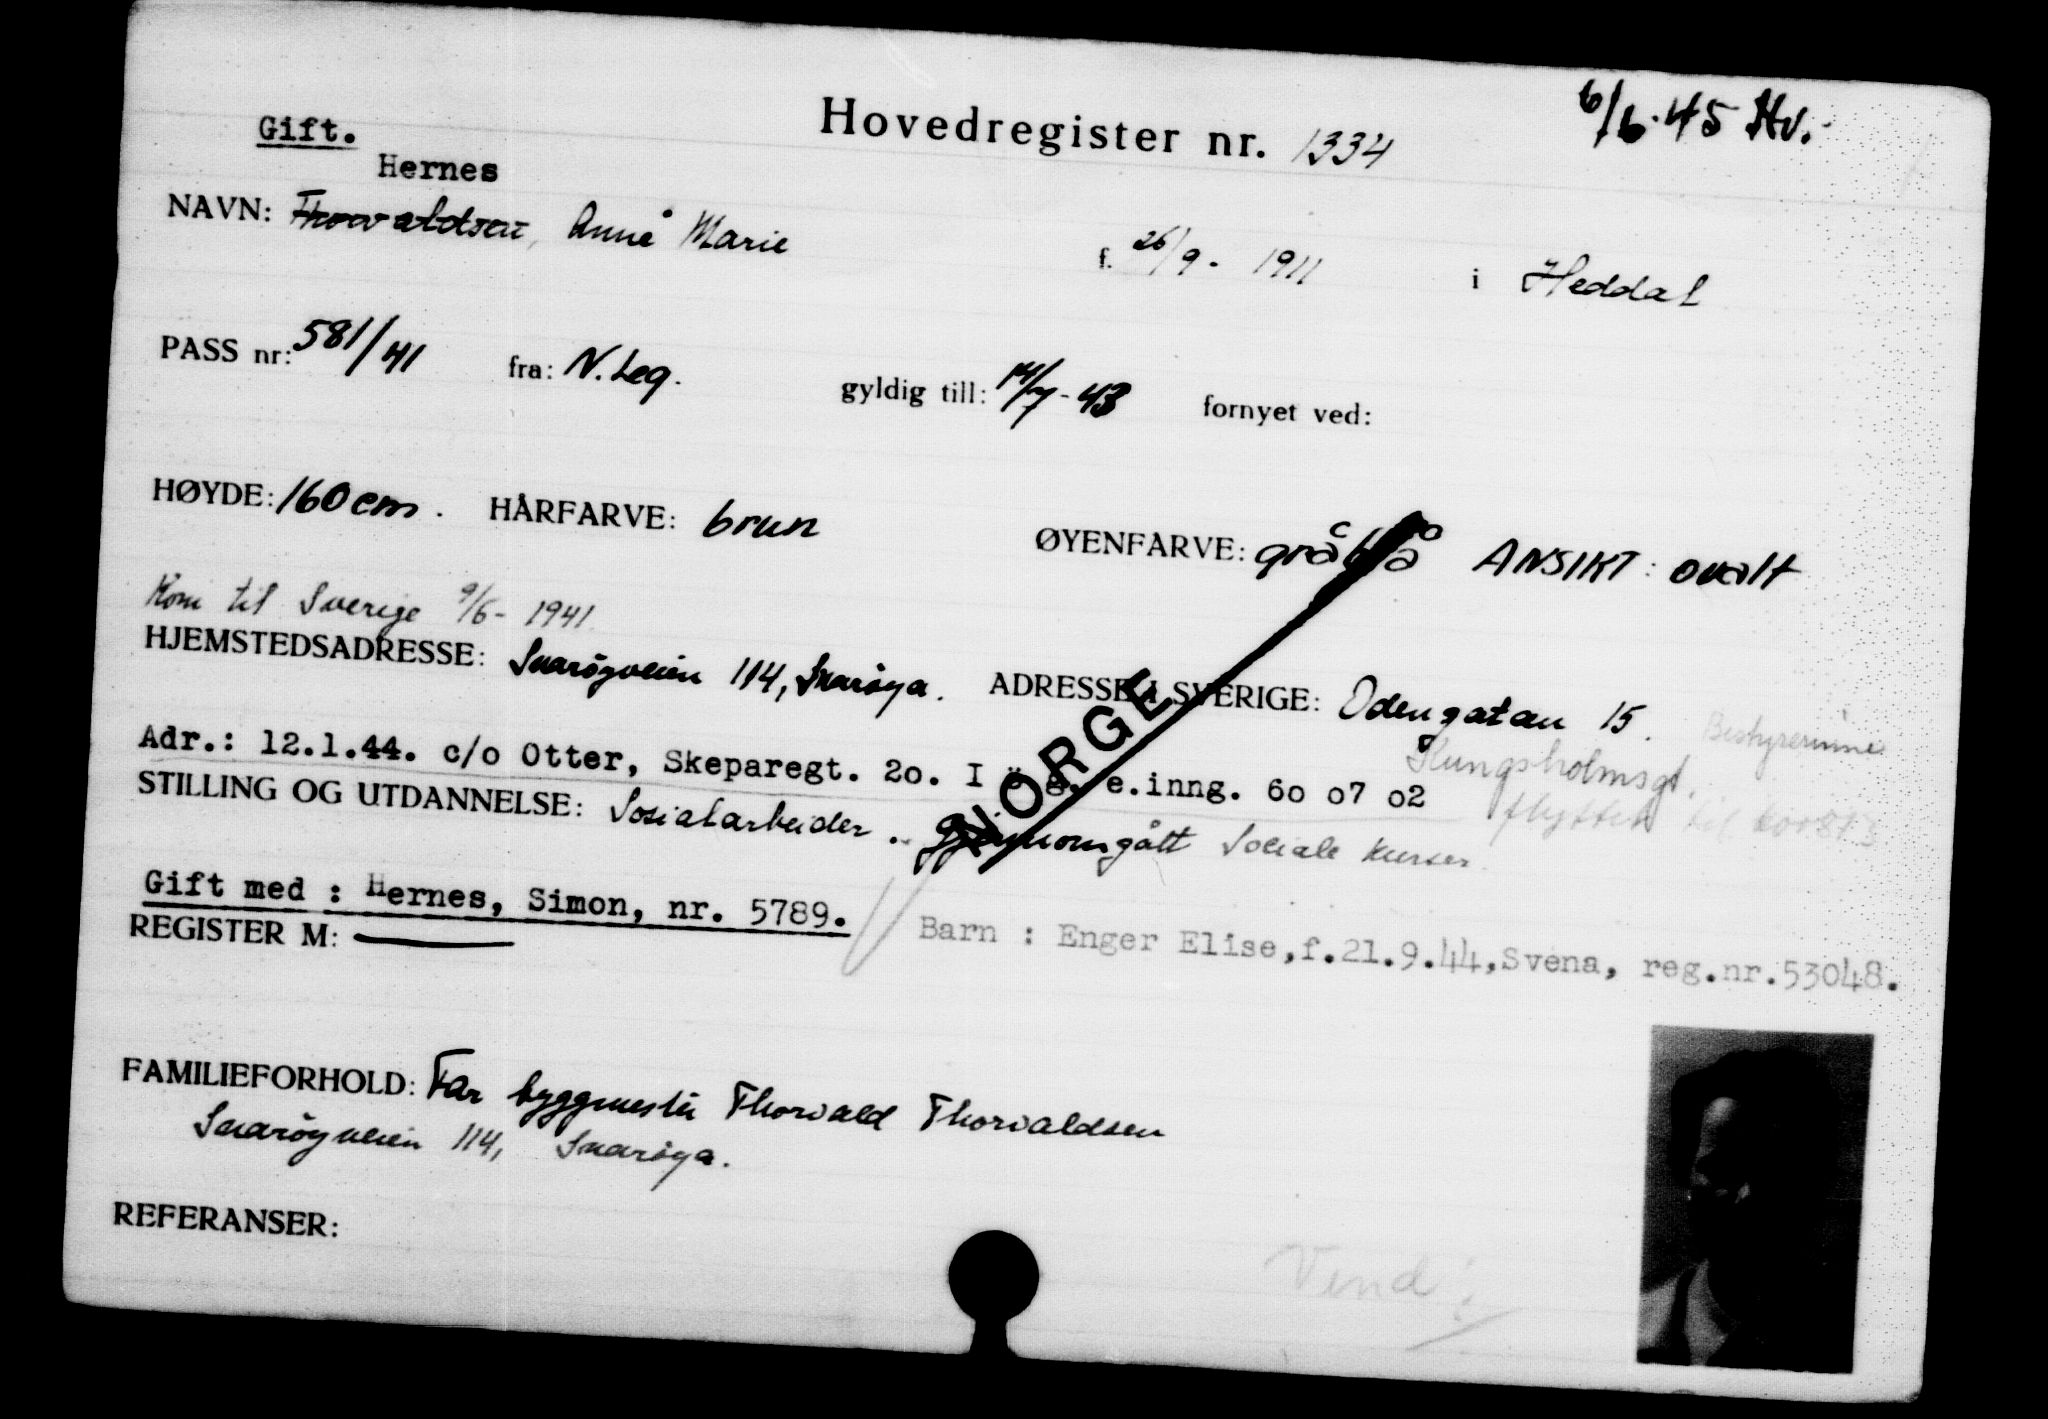 Hovedregister nr. 1334
6/6.45 Hv.
Gift.
Hernes
NAVN: Thorvaldsen, Anne Marie f. 26/9 - 1911 i Heddal
PASS nr: 581/41 fra: N. Leg. gyldig till: 14/7-43 fornyet ved:
HØYDE: 160 cm. HÅRFARVE: brun ØYENFARVE: gråblå ANSIKT: ovalt
Kom til Sverige 9/6 - 1941.
HJEMSTEDSADRESSE: Snarøyveien 114, Snarøya. ADRESSE I SVERIGE: Odengatan 15. Bestyrerinne
Kungsholmsgt.
Adr.: 12.1.44. c/o Otter, Skeparegt. 20. I ö g. e.inng. 60 07 02
flyttet til
STILLING OG UTDANNELSE: Sosialarbeider. Gjennomgått Sociale kurser.
NORGE
Gift med : Hernes, Simon, nr. 5789. Barn : Enger Elise, f.21.9.44, Svena, reg.nr.53048.
REGISTER M: —
FAMILIEFORHOLD: Far byggmester Thorvald Thorvaldsen
Snarøyveien 114, Snarøya.
REFERANSER:
Vend!